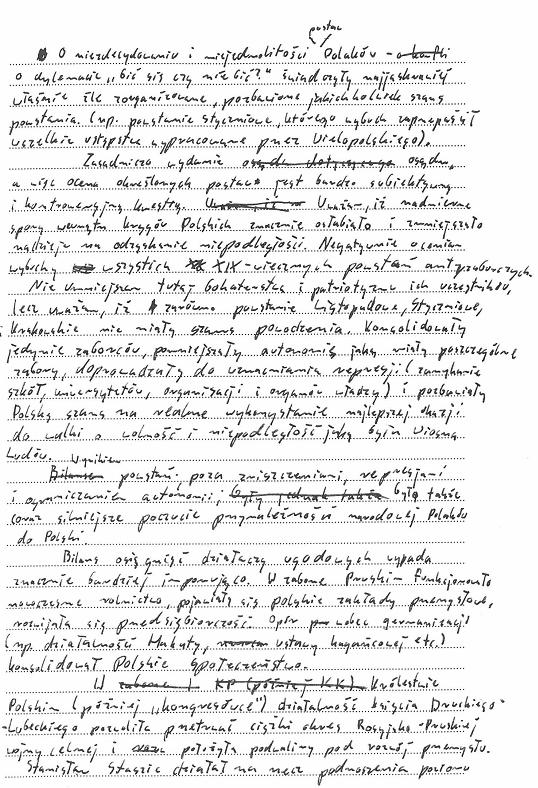 postaw
O niezdecydowaniu i niejednolitości Polaków -
o dylemacie „bić się czy nie bić?" świadczyły najjaskrawiej
właśnie źle zorganizowane, pozbawione jakichkolwiek szans
powstania (np. powstanie styczniowe, którego wybuch zaprzepaścił
wszelkie ustępstwa wypracowane przez Wielopolskiego).
Zasadniczo wydanie osądu,
a więc ocena określonych postaw jest bardzo subiektywną
i kontrowersyjną kwestią. Uważam, iż nadmierne
spory wewnątrz kręgów Polskich znacznie osłabiało i zmniejszało
nadzieje na odzyskanie niepodległości. Negatywnie oceniam
wybuchy wszystkich XIX-wiecznych powstań antyzaborczych.
Nie umniejszam tutaj bohaterstwa i patriotyzmu ich uczestników,
lecz uważam, iż zarówno powstanie Listopadowe, Styczniowe,
Krakowskie nie miały szans powodzenia. Konsolidowały
jedynie zaborców, pomniejszały autonomię jaką miały poszczególne
zabory, doprowadzały do wzmacniania represji (zamykanie
szkół, uniwersytetów, organizacji i organów władzy) i pozbawiały
Polskę szans na realne wykorzystanie najlepszej okazji
do walki o wolność i niepodległość jaką była Wiosna
Ludów.
Wynikiem powstań poza zniszczeniami, represjami
i ograniczaniem autonomii; było także
coraz silniejsze poczucie przynależności narodowej Polaków
do Polski.
Bilans osiągnięć działaczy ugodowych wypada
znacznie bardziej imponująco. W zaborze Pruskim funkcjonowało
nowoczesne rolnictwo, pojawiały się polskie zakłady przemysłowe,
rozwijała się przedsiębiorczość. Opór wobec germanizacji
(np. działalności Hakaty, ustawy kagańcowej etc.)
konsolidował Polskie społeczeństwo.
W Królestwie
Polskim (później „kongresówce") działalność księcia Druckiego-
-Lubeckiego pozwoliła przetrwać ciężki okres Rosyjsko-Pruskiej
wojny celnej i położyła podwaliny pod rozwój przemysłu.
Stanisław Staszic działał na rzecz podnoszenia poziomu